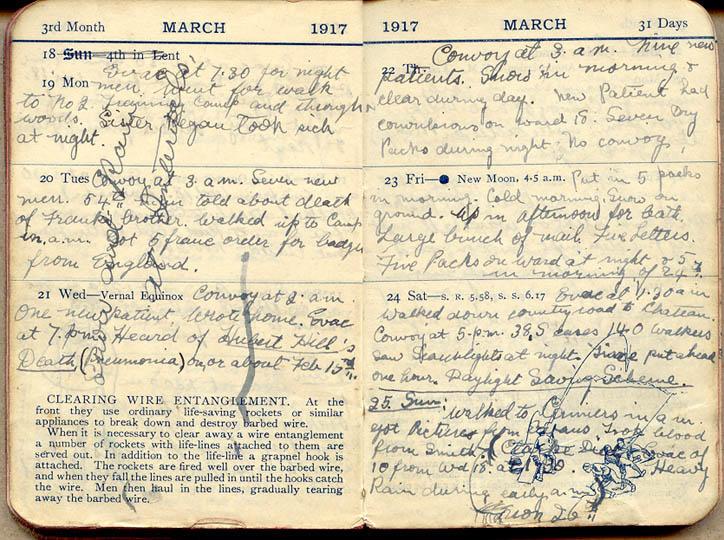 3rd Month MARCH 1917
18 Sun—4th in Lent
Evac at 7.30 for night
19 Mon men. Went for walk
to No 2. Training Camp and through
woods. Sister Began took sick
at night.
20 Tues Convoy at 3. a.m. Seven new
men. told about death
of Franks brother. Walked up to Camp
in a.m. Got 5 franc order for badges
from England.
21 Wed—Vernal Equinox Convoy at 2. a.m.
One new patient. Wrote home. Evac
at 7. p.m. Heard of Hubert Hill's
Death (Pneumonia) on, or about Feb 15th
CLEARING WIRE ENTANGLEMENT. At the
front they use ordinary life-saving rockets or similar
appliances to break down and destroy barbed wire.
When it is necessary to clear away a wire entanglement
a number of rockets with life-lines attached to them are
served out. In addition to the life-line a grapnel hook is
attached. The rockets are fired well over the barbed wire,
and when they fall the lines are pulled in until the hooks catch
the wire. Men then haul in the lines, gradually tearing
away the barbed wire.
1917 MARCH 31 Days
Convoy at 3. a.m. Nine new
22 Th. patients. Snow in morning &
clear during day. New Patient had
convulsions on ward 18. Seven Dry
Packs during night. No convoy,
23 Fri— New Moon, 4.5 a.m. Put in 5 packs
in morning. Cold morning. Snow on
ground. Up in afternoon for bath.
Large bunch of mail. Five Letters.
Five Packs on Ward at night & 5
in morning of 24th.
24 Sat—S. R. 5.58, S. S. 6.17 Evac at 1.30 a.m
Walked down country road to Chateau.
Convoy at 5-p.m. 38, S cases 140 walkers
Saw Searchlights at night. Time put ahead
one hour. Daylight Saving Scheme.
25. Sun. Walked to in a.m.
Got Pictures from Took blood
from Smith. Evac of
10 from Wd 18. at Heavy
Rain during early a.m.
26th